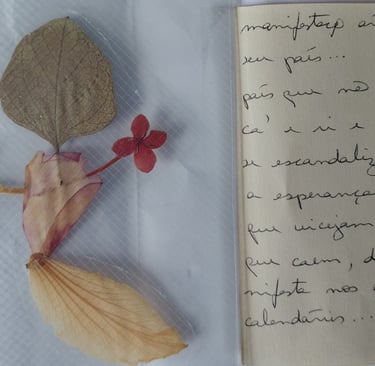 manifesta
seu país...
país que
cá e
se escandaliz
a esperança
que
que caem, d
nifesta nos
calendários...